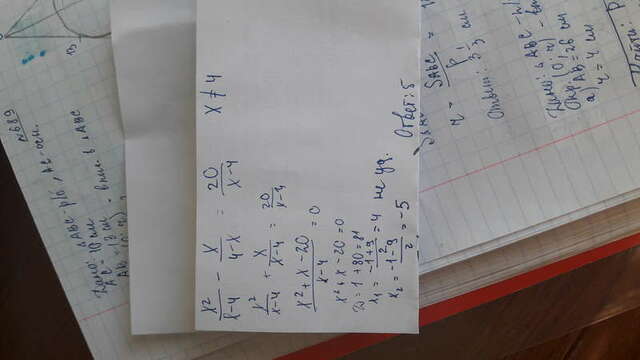 №689
Дано: △ABC - р/б, AC - осн.
AC = 10 см
AB = 13 см
B
x²/x-4 - x/4-x = 20/x-4 x ≠ 4
x²/x-4 + x/x-4 = 20/x-4
x² + x - 20/x-4 = 0
x² + x - 20 = 0
D = 1 + 80 = 81
x₁ = -1+9/2 = 4 не уд.
x₂ = -1-9/2 = -5
Ответ: 5
r = S ABC/p =
Ответ: 3 1/3 см
Дано: △ABC -
Окр. (O; r) -
а) AB = 26 см
r = 4 см
Найти: P